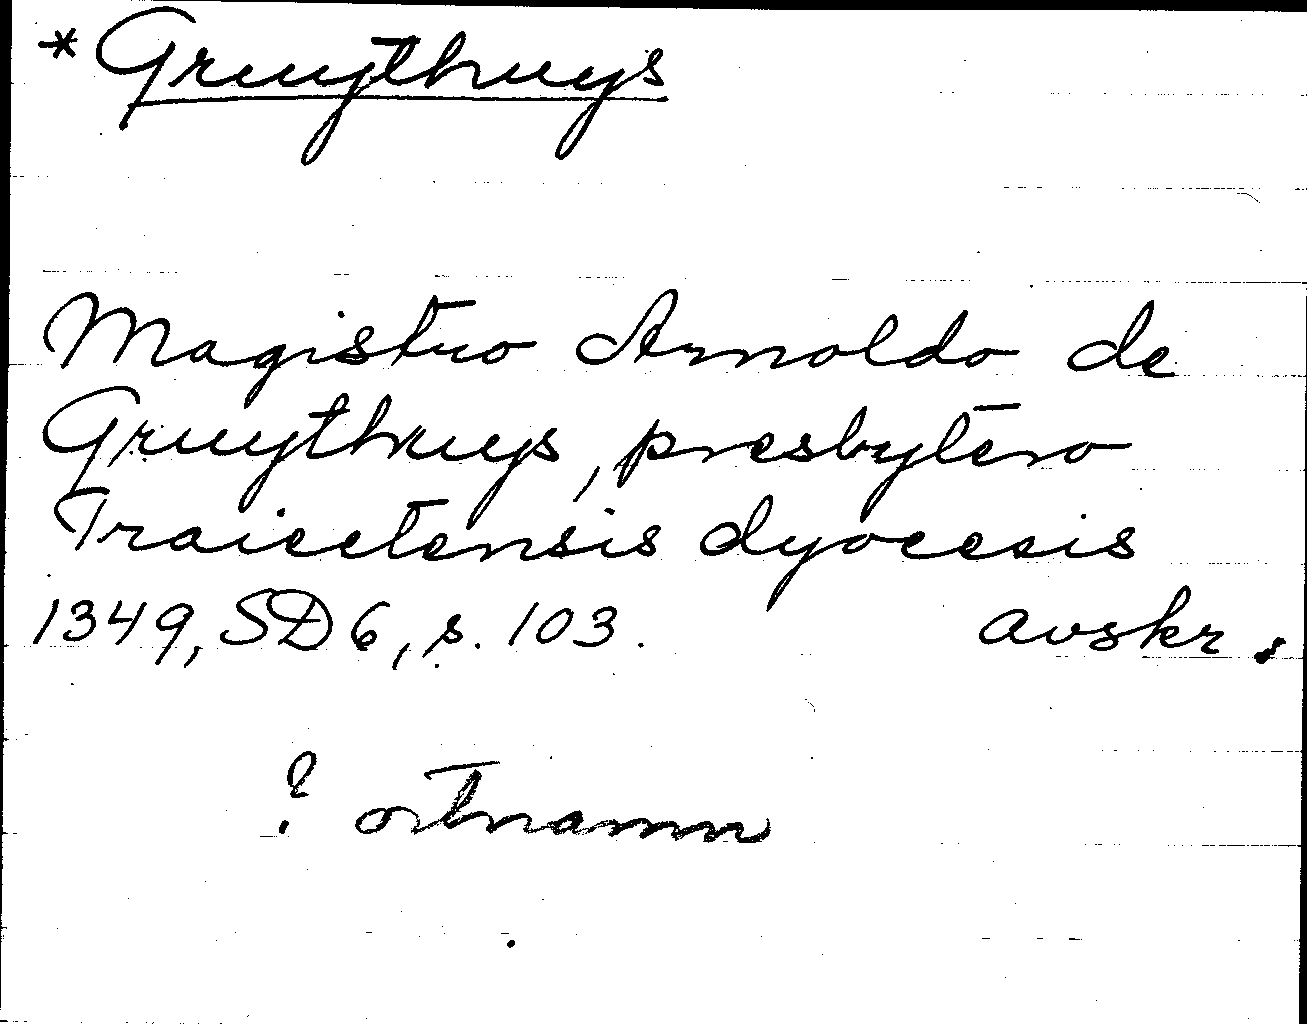 * Gruythuys
Magistro Arnoldo de
Gruythuys, presbytero
Traiectensis dyocesis
1349, SD 6, s. 103. avskr.
? ortnamn